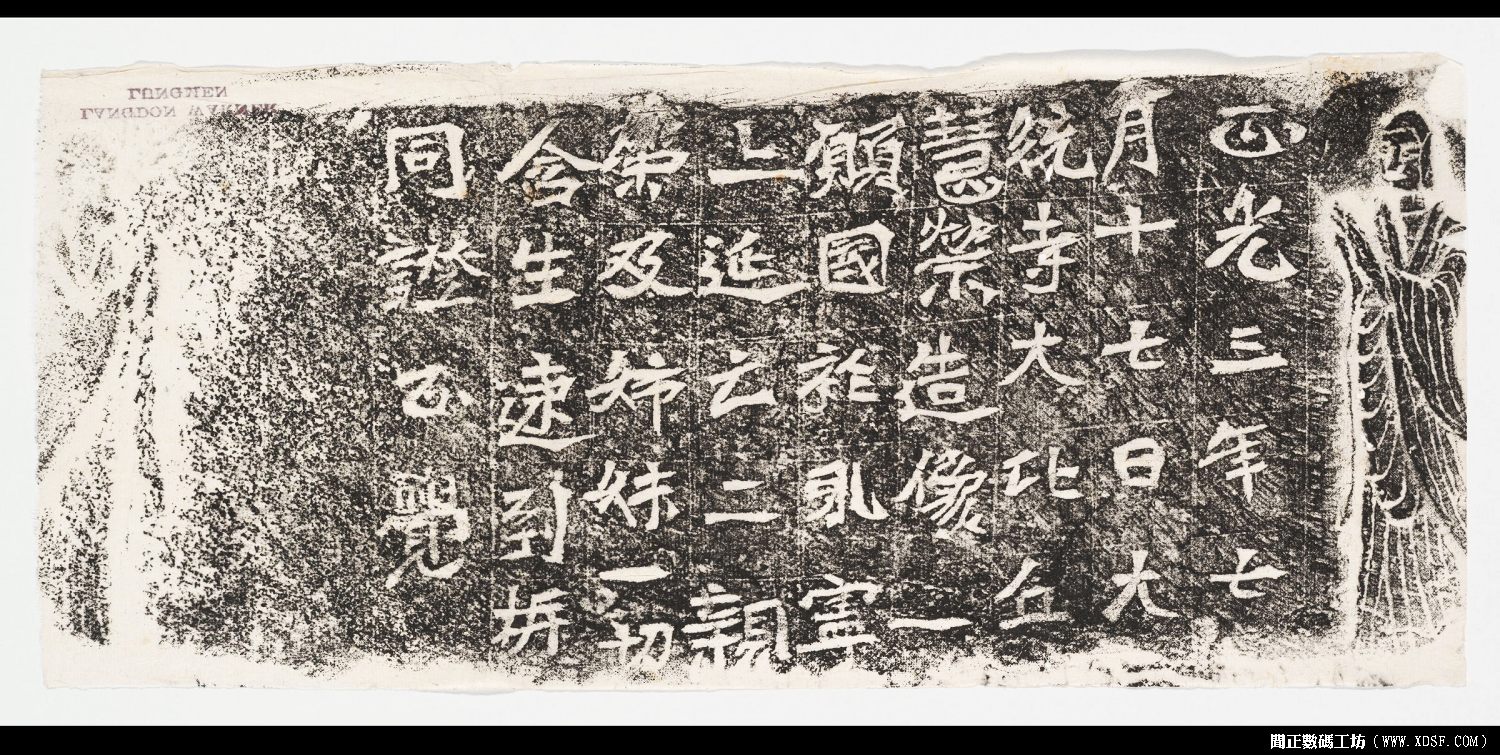 正光三年七
月十七日大
統寺大比丘
慧榮造像一
願國祚永寧
上延亡二親
榮及姊妹一切
含生速到妍
同證正覺
LUNGMEN
LANGDON WARNER
閒正數碼工坊(WWW.XDSF.COM)